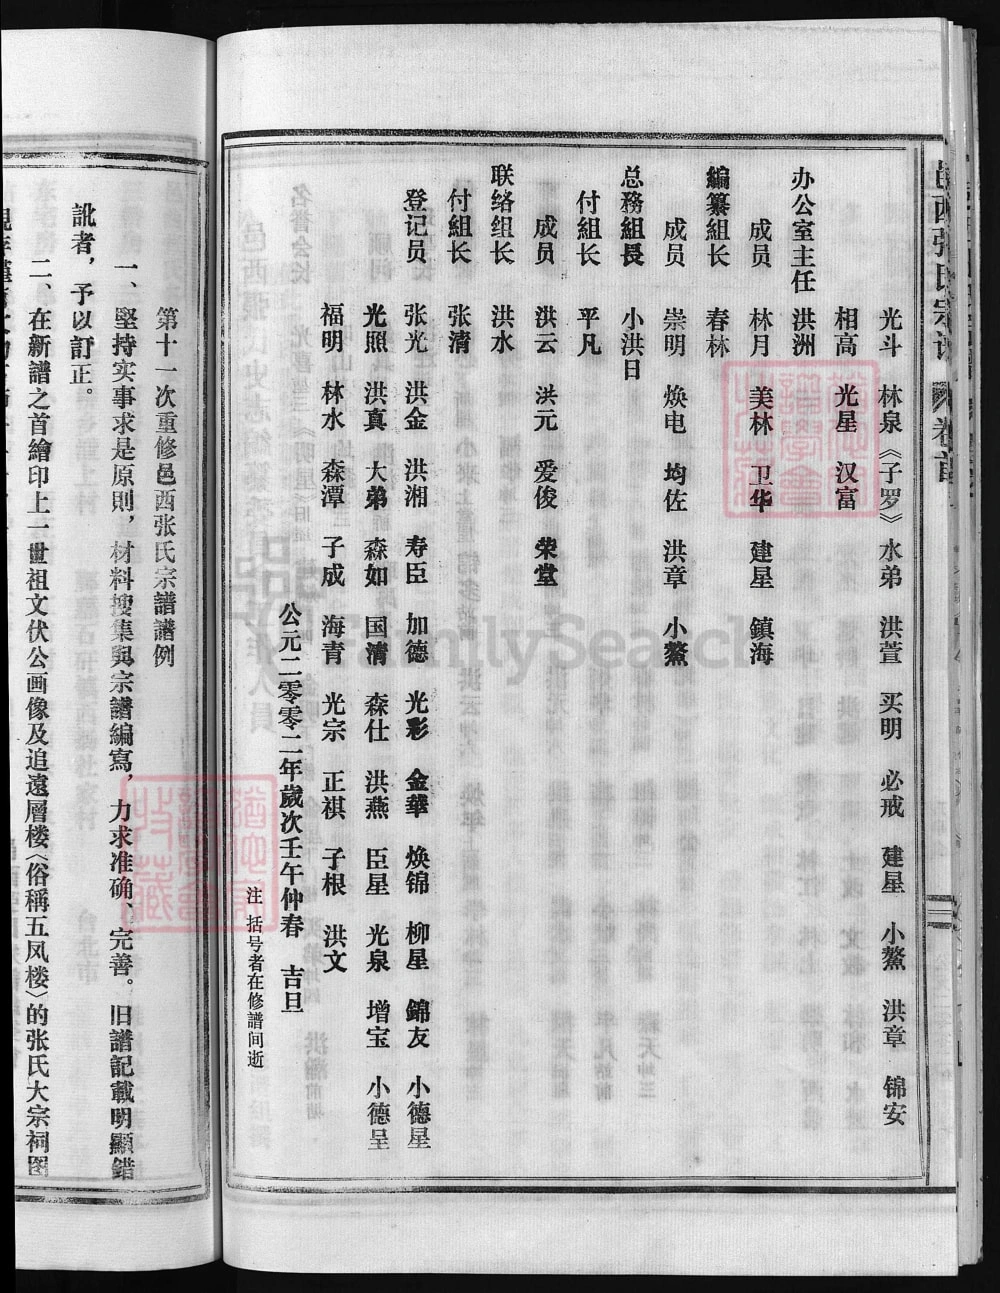 邑西张氏宗谱 卷首
光斗 林泉《子罗》 水弟 洪萱 买明 必戒 建星 小鰲 洪章 锦安
相高 光星 汉富
办公室主任 洪洲
成员 林月 美林 卫华 建星 鎮海
編纂組长 春林
成員 崇明 焕电 均佐 洪章 小鰲
总務組長 小洪日
付組长 平凡
成员 洪云 洪元 爱俊 荣堂
联络组长 洪水
付組长 张清
登记员 张光 洪金 洪湘 寿臣 加德 光彩 金華 焕锦 柳星 錦友 小德星
光照 洪真 大弟 森如 国清 森仕 洪燕 臣星 光泉 增宝 小德呈
福明 林水 森潭 子成 海青 光宗 正祺 子根 洪文
公元二零零二年歲次壬午仲春 吉旦
注 括号者在修譜间逝
第十一次重修邑西张氏宗譜譜例
一、堅持实事求是原則，材料搜集與宗譜編寫，力求准确、完善。旧譜記載明顯錯
訛者，予以訂正。
二、在新譜之首繪印上一世祖文伏公画像及追遠層楼〈俗稱五凤楼〉的张氏大宗祠图
FamilySearch